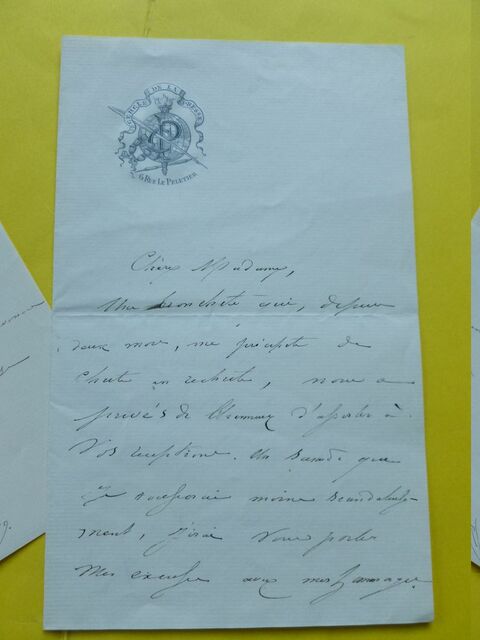 CERCLE DE LA PRESSE
6 RUE LE PELETIER
Chère Madame,
Une bronchite qui, depuis
deux mois, me précipite de
chute en rechute, nous a
privés de l'honneur d'assister à
Vos réceptions. Un samedi que
je tousserai moins scandaleuse-
ment, j'irai Vous porter
Mes excuses avec mes hommages.